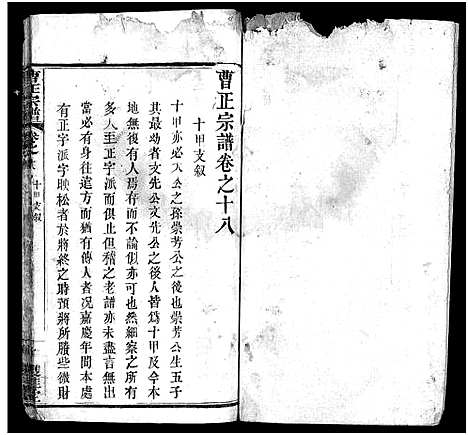 曹正宗譜卷之十八
十甲支叙
十甲亦必大公之孫崇芳公之後也崇芳公生五子
其最幼者文先公文先公之後人皆爲十甲及今本
地無後有人焉存而不論似亦可也然細察之所
多人至正字派而俱止但稽之老譜亦未盡言無出
當必有身往遠方而猶有傳人者况嘉慶年間本處
有正字派字映松者於將終之時預將所廢些微財
曹正宗譜
卷之
十甲支叙